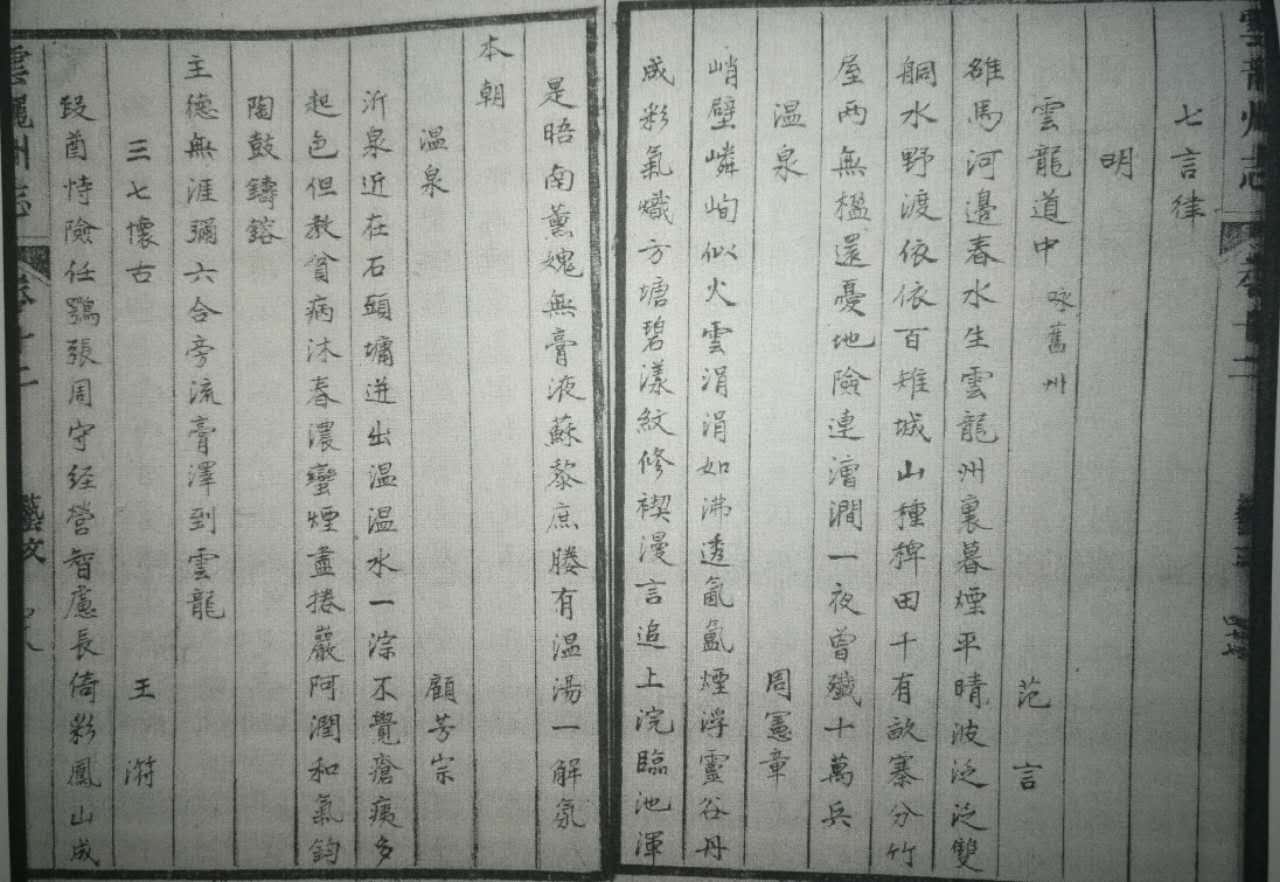 雲龍州志
卷十二
藝文
七言律
明
雲龍道中 咏舊州 范言
雒馬河邊春水生雲龍州裏暮煙平晴波泛泛雙
艄水野渡依依百雉城山種稗田千有畝寨分竹
屋兩無楹還憂地險連漕澗一夜曾殲十萬兵
溫泉 周憲章
峭壁嶙峋似火雲涓涓如沸透氤氳煙浮靈谷丹
成彩氣熾方塘碧漾紋修禊漫言追上浣臨池渾
是晤南薰媿無膏液蘇黎庶賸有溫湯一解氛
本朝
溫泉 顧芳宗
沂泉近在石頭墉迸出溫溫水一淙不覺瘡痍多
起色但教貧病沐春濃蠻煙盡捲巖阿潤和氣鈞
陶鼓鑄鎔
主德無涯彌六合旁流膏澤到雲龍
三七懷古 王㴋
段酋恃險任鴞張周守经营智慮長倚彩鳳山成
雲龍州志
卷十二
藝文